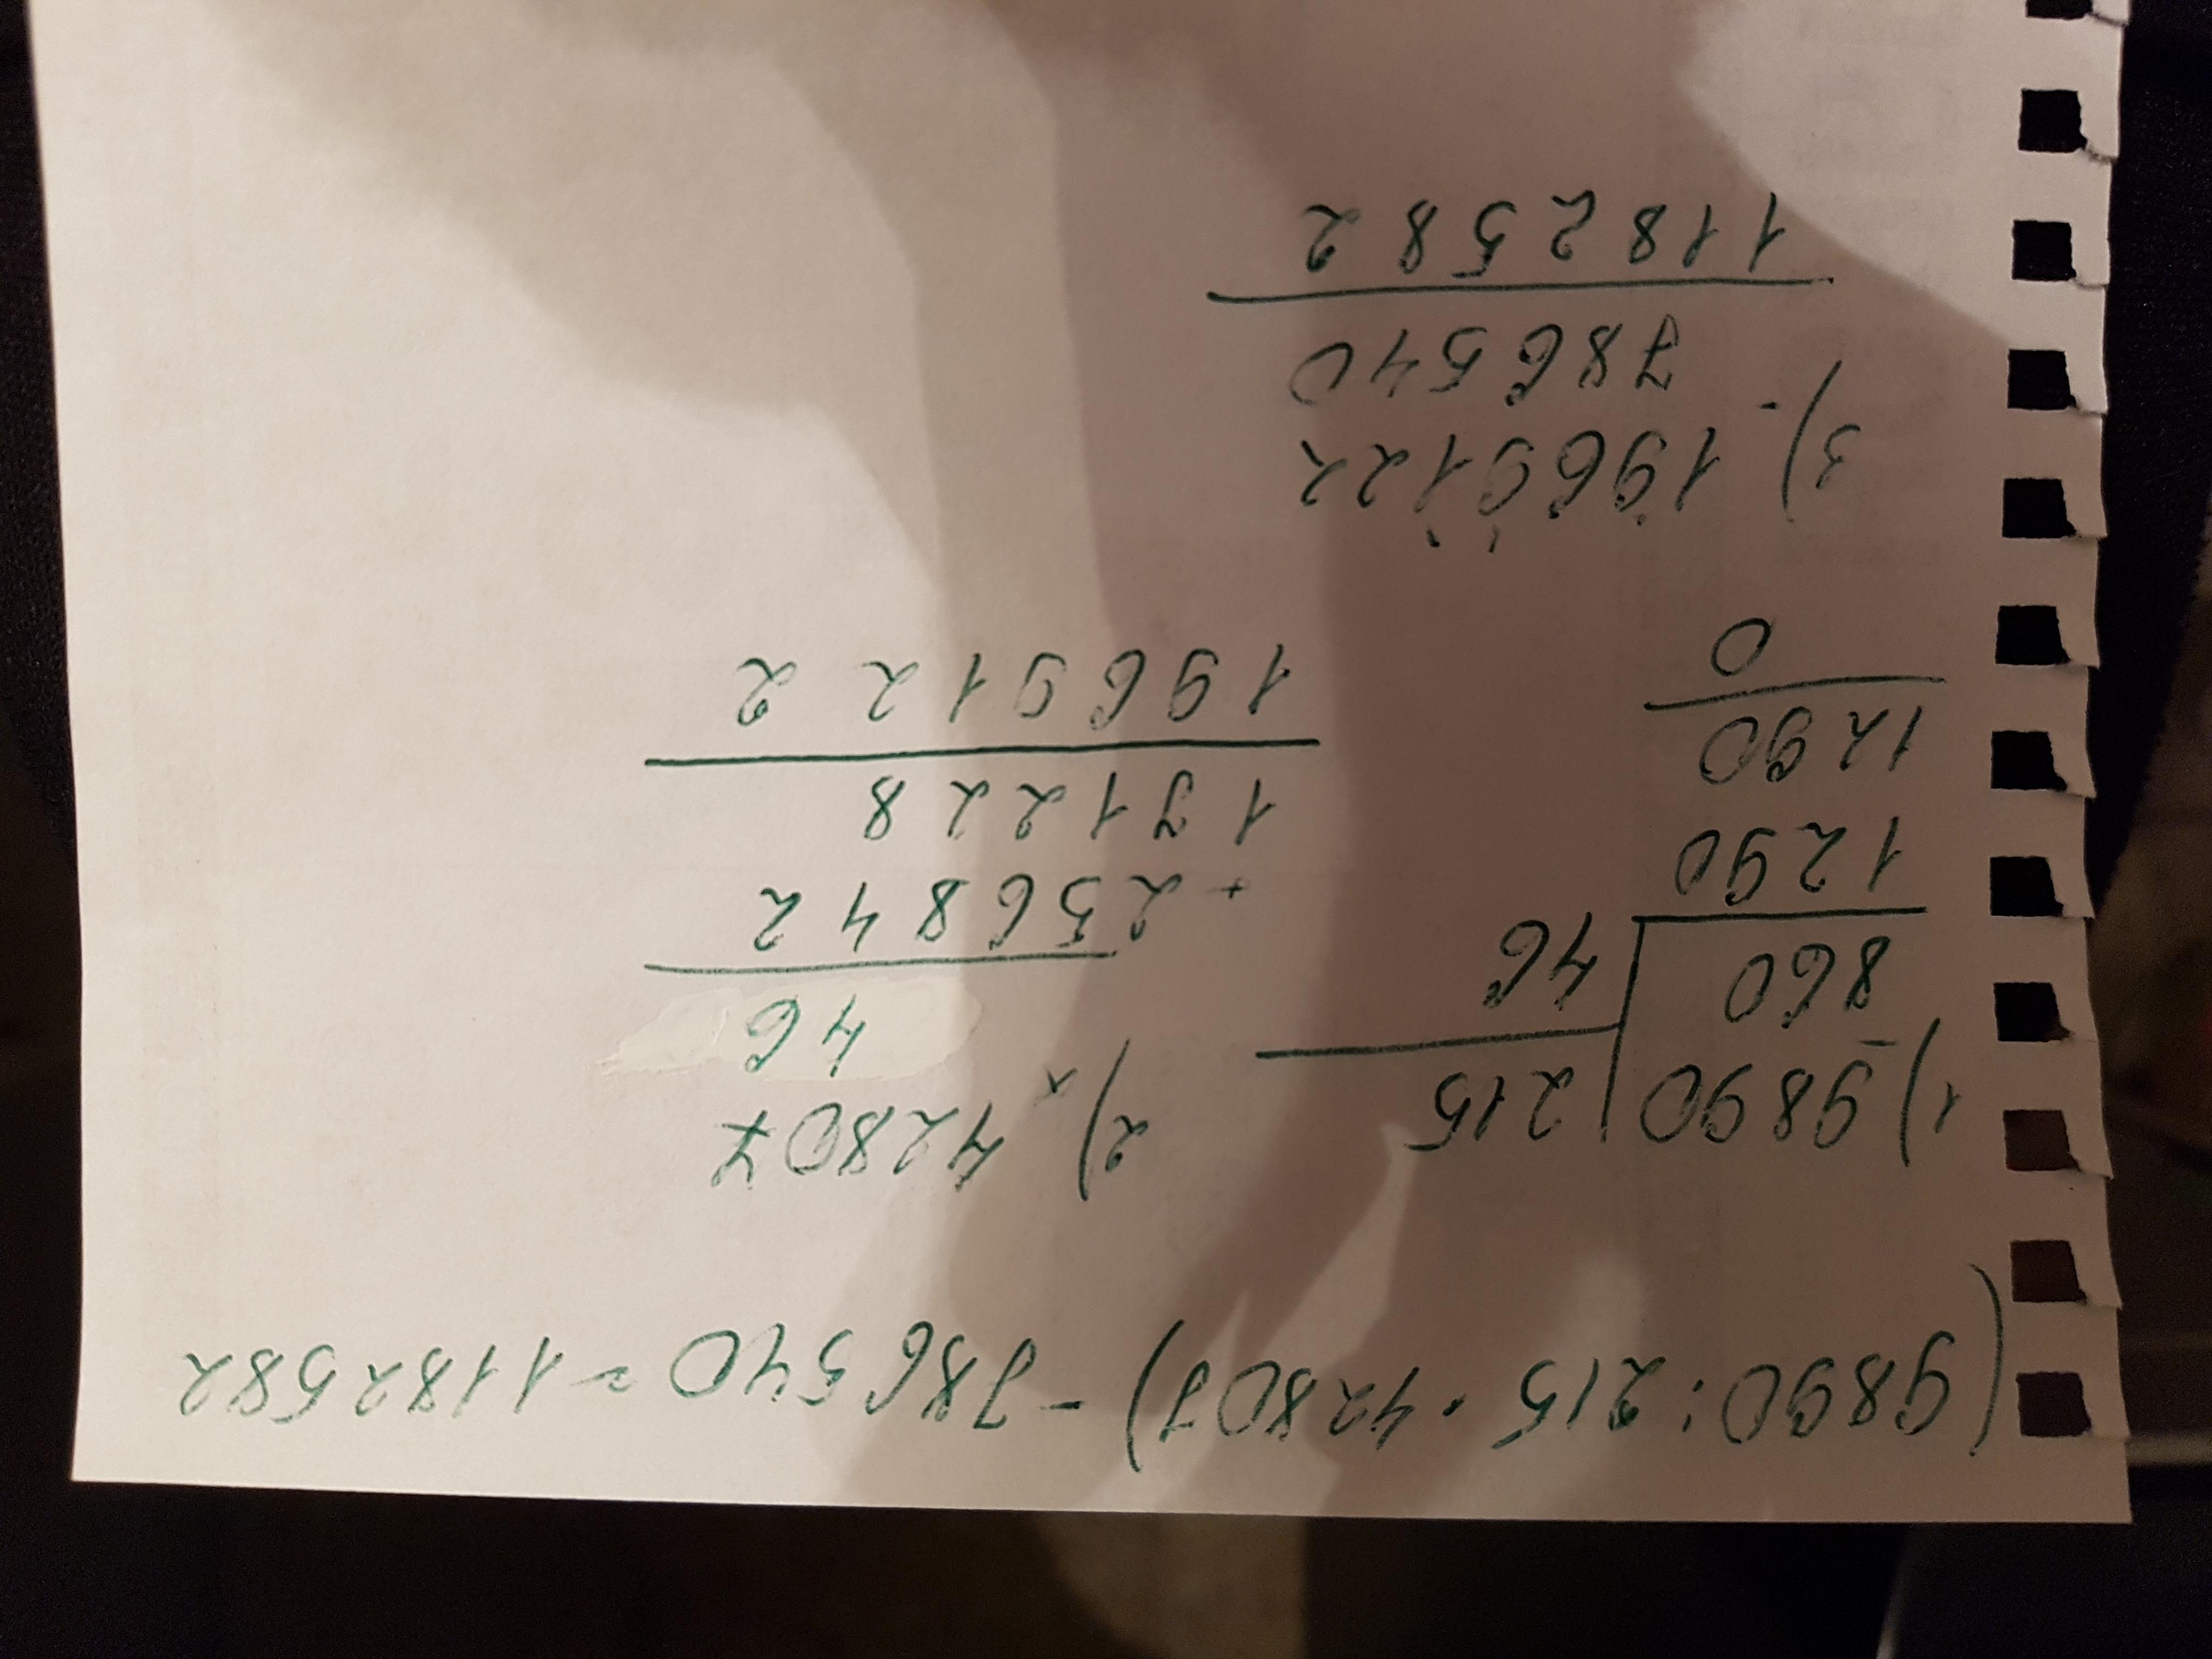 (9890:215·42807)-786540=1182582
1) 9890 | 215
- 860
46
1290
1290
0
2) 42807
× 46
+ 256842
171228
1969122
3) 1969122
- 786540
1182582